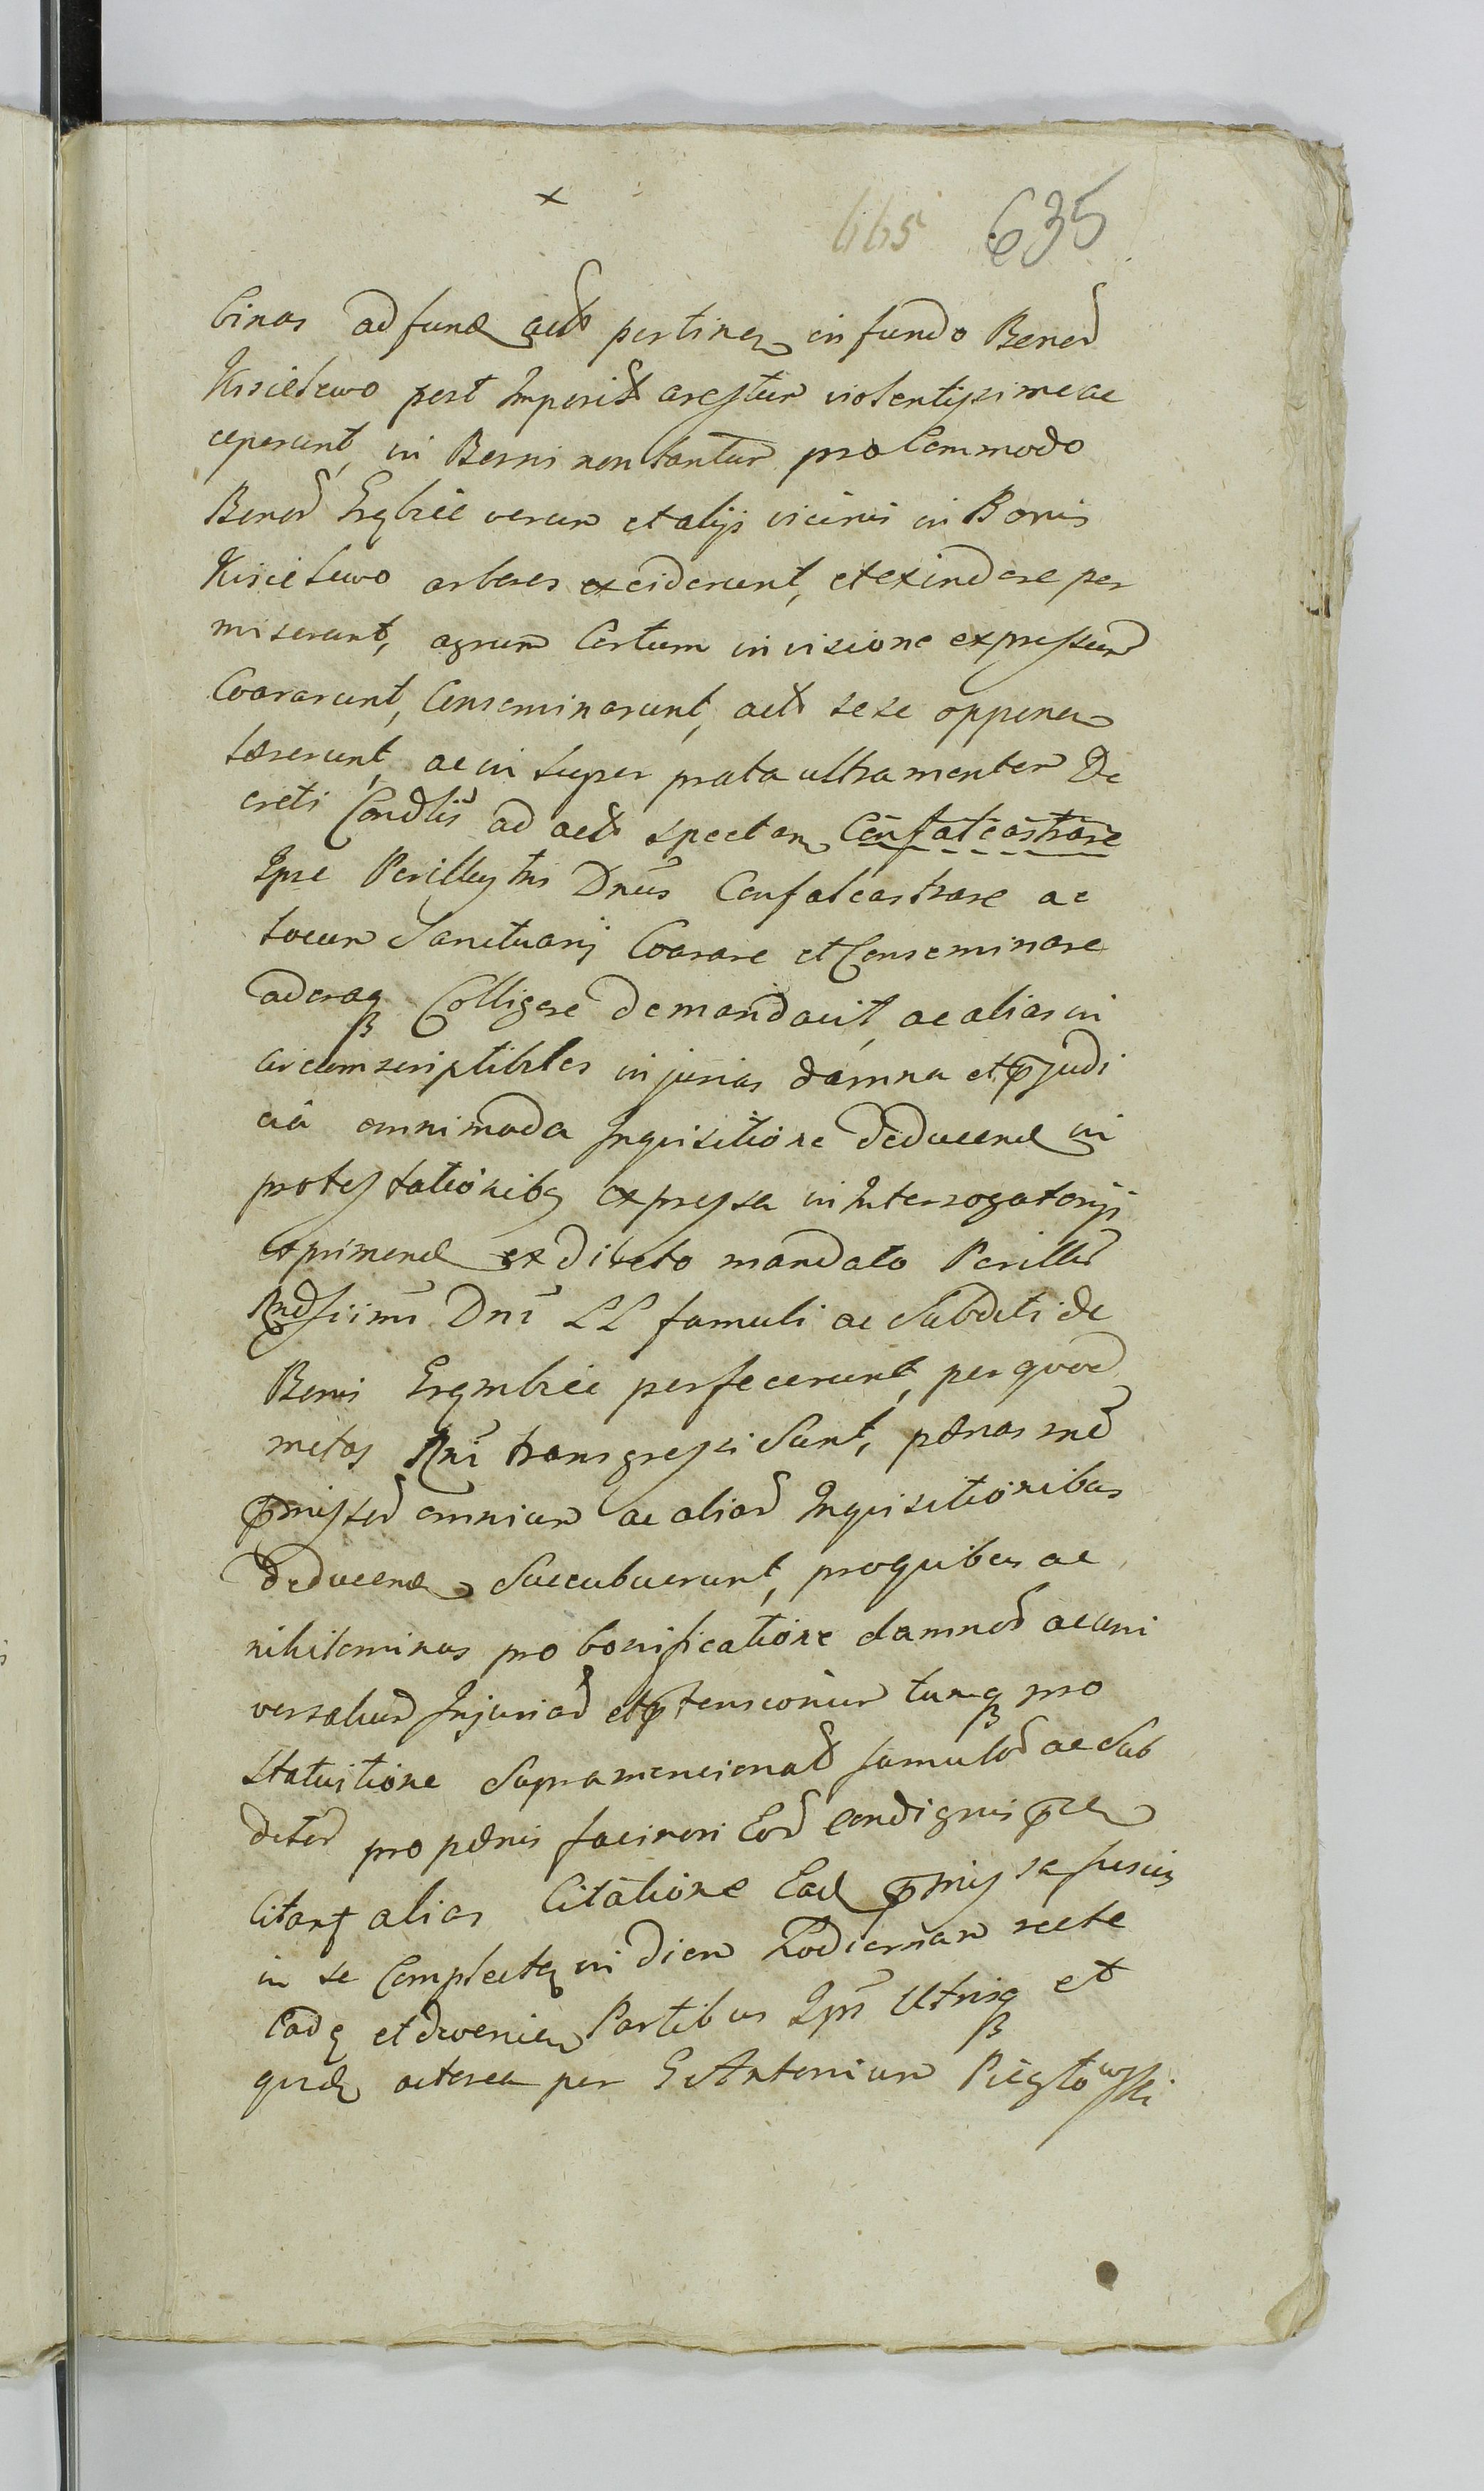 x
665 635
binas ad fund act pertinen in fundo Bonor
Kisielewo post Imposit arestum violentissime ac
ceperunt, in Bonis non tantum pro Commodo
Bonor verum et alijs vicinis in Bonis
Kisielewo arbores exciderunt, et exindere per
miserunt, agrum Certum in visione expressum
Coararunt, Conseminarunt, act sese opponen
læserunt, ac in super prata ultra mentem De
creti Condlis ad act spectan Confalcastrare
Ipse Perillustris Dnus Confalcastrare ac
locum Sanctuarij Coarare et Conseminare
adeoq Colligere demandavit, ac alias in
circumscriptibiles injurias damna et pjudi
cia omnimoda Inquisitione deducend in
protestationibq expressa in Interrogatorijs
exprimend ex directo mandato Perillus
Rndssimi Dni LL famuli ac Subditi de
Bonis perfecerunt, per quod
metas Rni transgressi Sunt, pænas
pmissor omnium ac aliar Inquisitionibus
deducend Succubuerunt, pro quibus ac
nihilominus pro bonificatione damnor ac uni
versalium Injuriar et ptensionum tumq pro
Statuitione Supramencionat famulor ac Sub
ditor pro pænis facinori Eor condignis
Citant alias Citatione Ead pmissa fusius
in se Complectes in diem hodiernam recte
Cadq et deveniens Partibus Ipsi Utrisq et
quidem actorea per G Antonium